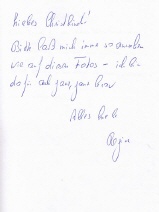 Liebes Christkind!
Bitte laß mich immer so aussehen
wie auf diesen Fotos – ich bin
dafür auch ganz, ganz brav
Alles Liebe